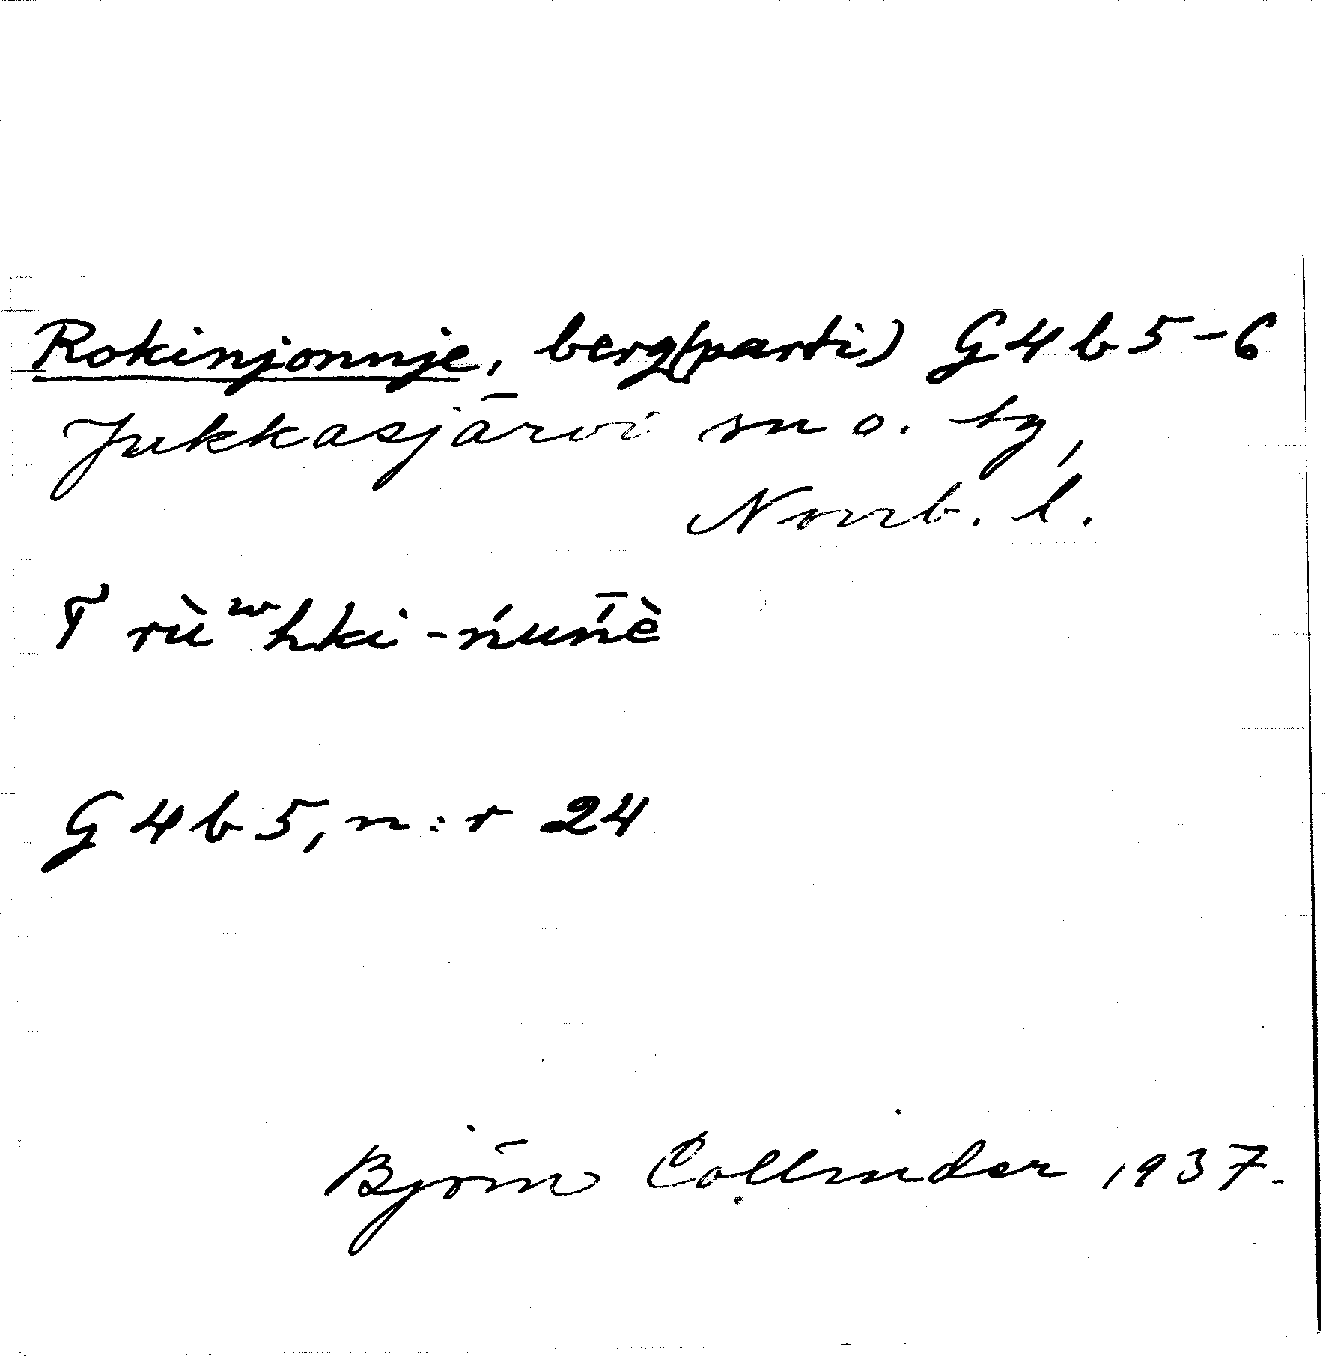 Rokinjonnje, berg(parti) G4b5-6
Jukkasjärvi sn o. tg,
Norrb. l.
T rùʷhki-ńuńè
G4b5, n:r 24
Björn Collinder 1937.